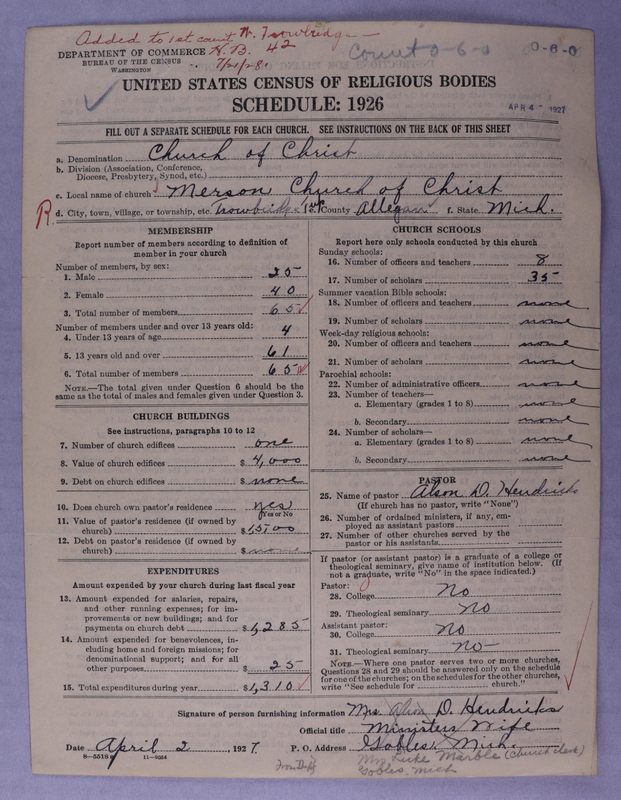 Added to 1st count N. Trowbridge —
DEPARTMENT OF COMMERCE
BUREAU OF THE CENSUS
WASHINGTON
N. B. 42
7/21/28
Count 0-6-0
0-6-0
UNITED STATES CENSUS OF RELIGIOUS BODIES
SCHEDULE: 1926
APR 4 - 1927
FILL OUT A SEPARATE SCHEDULE FOR EACH CHURCH. SEE INSTRUCTIONS ON THE BACK OF THIS SHEET
a. Denomination Church of Christ
b. Division (Association, Conference,
Diocese, Presbytery, Synod, etc.)
c. Local name of church Merson Church of Christ
R d. City, town, village, or township, etc. Trowbridge e. County Allegan f. State Mich.
MEMBERSHIP
Report number of members according to definition of
member in your church
Number of members, by sex:
1. Male 25
2. Female 40
3. Total number of members 65
Number of members under and over 13 years old:
4. Under 13 years of age 4
5. 13 years old and over 61
6. Total number of members 65
NOTE.—The total given under Question 6 should be the
same as the total of males and females given under Question 3.
CHURCH BUILDINGS
See instructions, paragraphs 10 to 12
7. Number of church edifices one
8. Value of church edifices $ 4,000
9. Debt on church edifices $ none
10. Does church own pastor's residence yes
(Yes or No)
11. Value of pastor's residence (if owned by
church) $ 1500
12. Debt on pastor's residence (if owned by
church) $ none
EXPENDITURES
Amount expended by your church during last fiscal year
13. Amount expended for salaries, repairs,
and other running expenses; for im-
provements or new buildings; and for
payments on church debt $ 1,285
14. Amount expended for benevolences, in-
cluding home and foreign missions; for
denominational support; and for all
other purposes $ 25
15. Total expenditures during year $ 1,310
CHURCH SCHOOLS
Report here only schools conducted by this church
Sunday schools:
16. Number of officers and teachers 8
17. Number of scholars 35
Summer vacation Bible schools:
18. Number of officers and teachers none
19. Number of scholars none
Week-day religious schools:
20. Number of officers and teachers none
21. Number of scholars none
Parochial schools:
22. Number of administrative officers none
23. Number of teachers—
a. Elementary (grades 1 to 8) none
b. Secondary none
24. Number of scholars—
a. Elementary (grades 1 to 8) none
b. Secondary none
PASTOR
25. Name of pastor Alson D. Hendricks
(If church has no pastor, write "None")
26. Number of ordained ministers, if any, em-
ployed as assistant pastors
27. Number of other churches served by the
pastor or his assistants
If pastor (or assistant pastor) is a graduate of a college or
theological seminary, give name of institution below. (If
not a graduate, write "No" in the space indicated.)
Pastor:
28. College No
29. Theological seminary No
Assistant pastor:
30. College No
31. Theological seminary no
NOTE.—Where one pastor serves two or more churches,
Questions 28 and 29 should be answered only on the schedule
for one of the churches; on the schedules for the other churches,
write "See schedule for church."
Signature of person furnishing information Mrs Alson D. Hendricks
Official title Ministers Wife
Date April 2 1927. P. O. Address Gobles, Mich.
8—5518 11—9054
Mrs Luke Marble (Church clerk)
Gobles, Mich